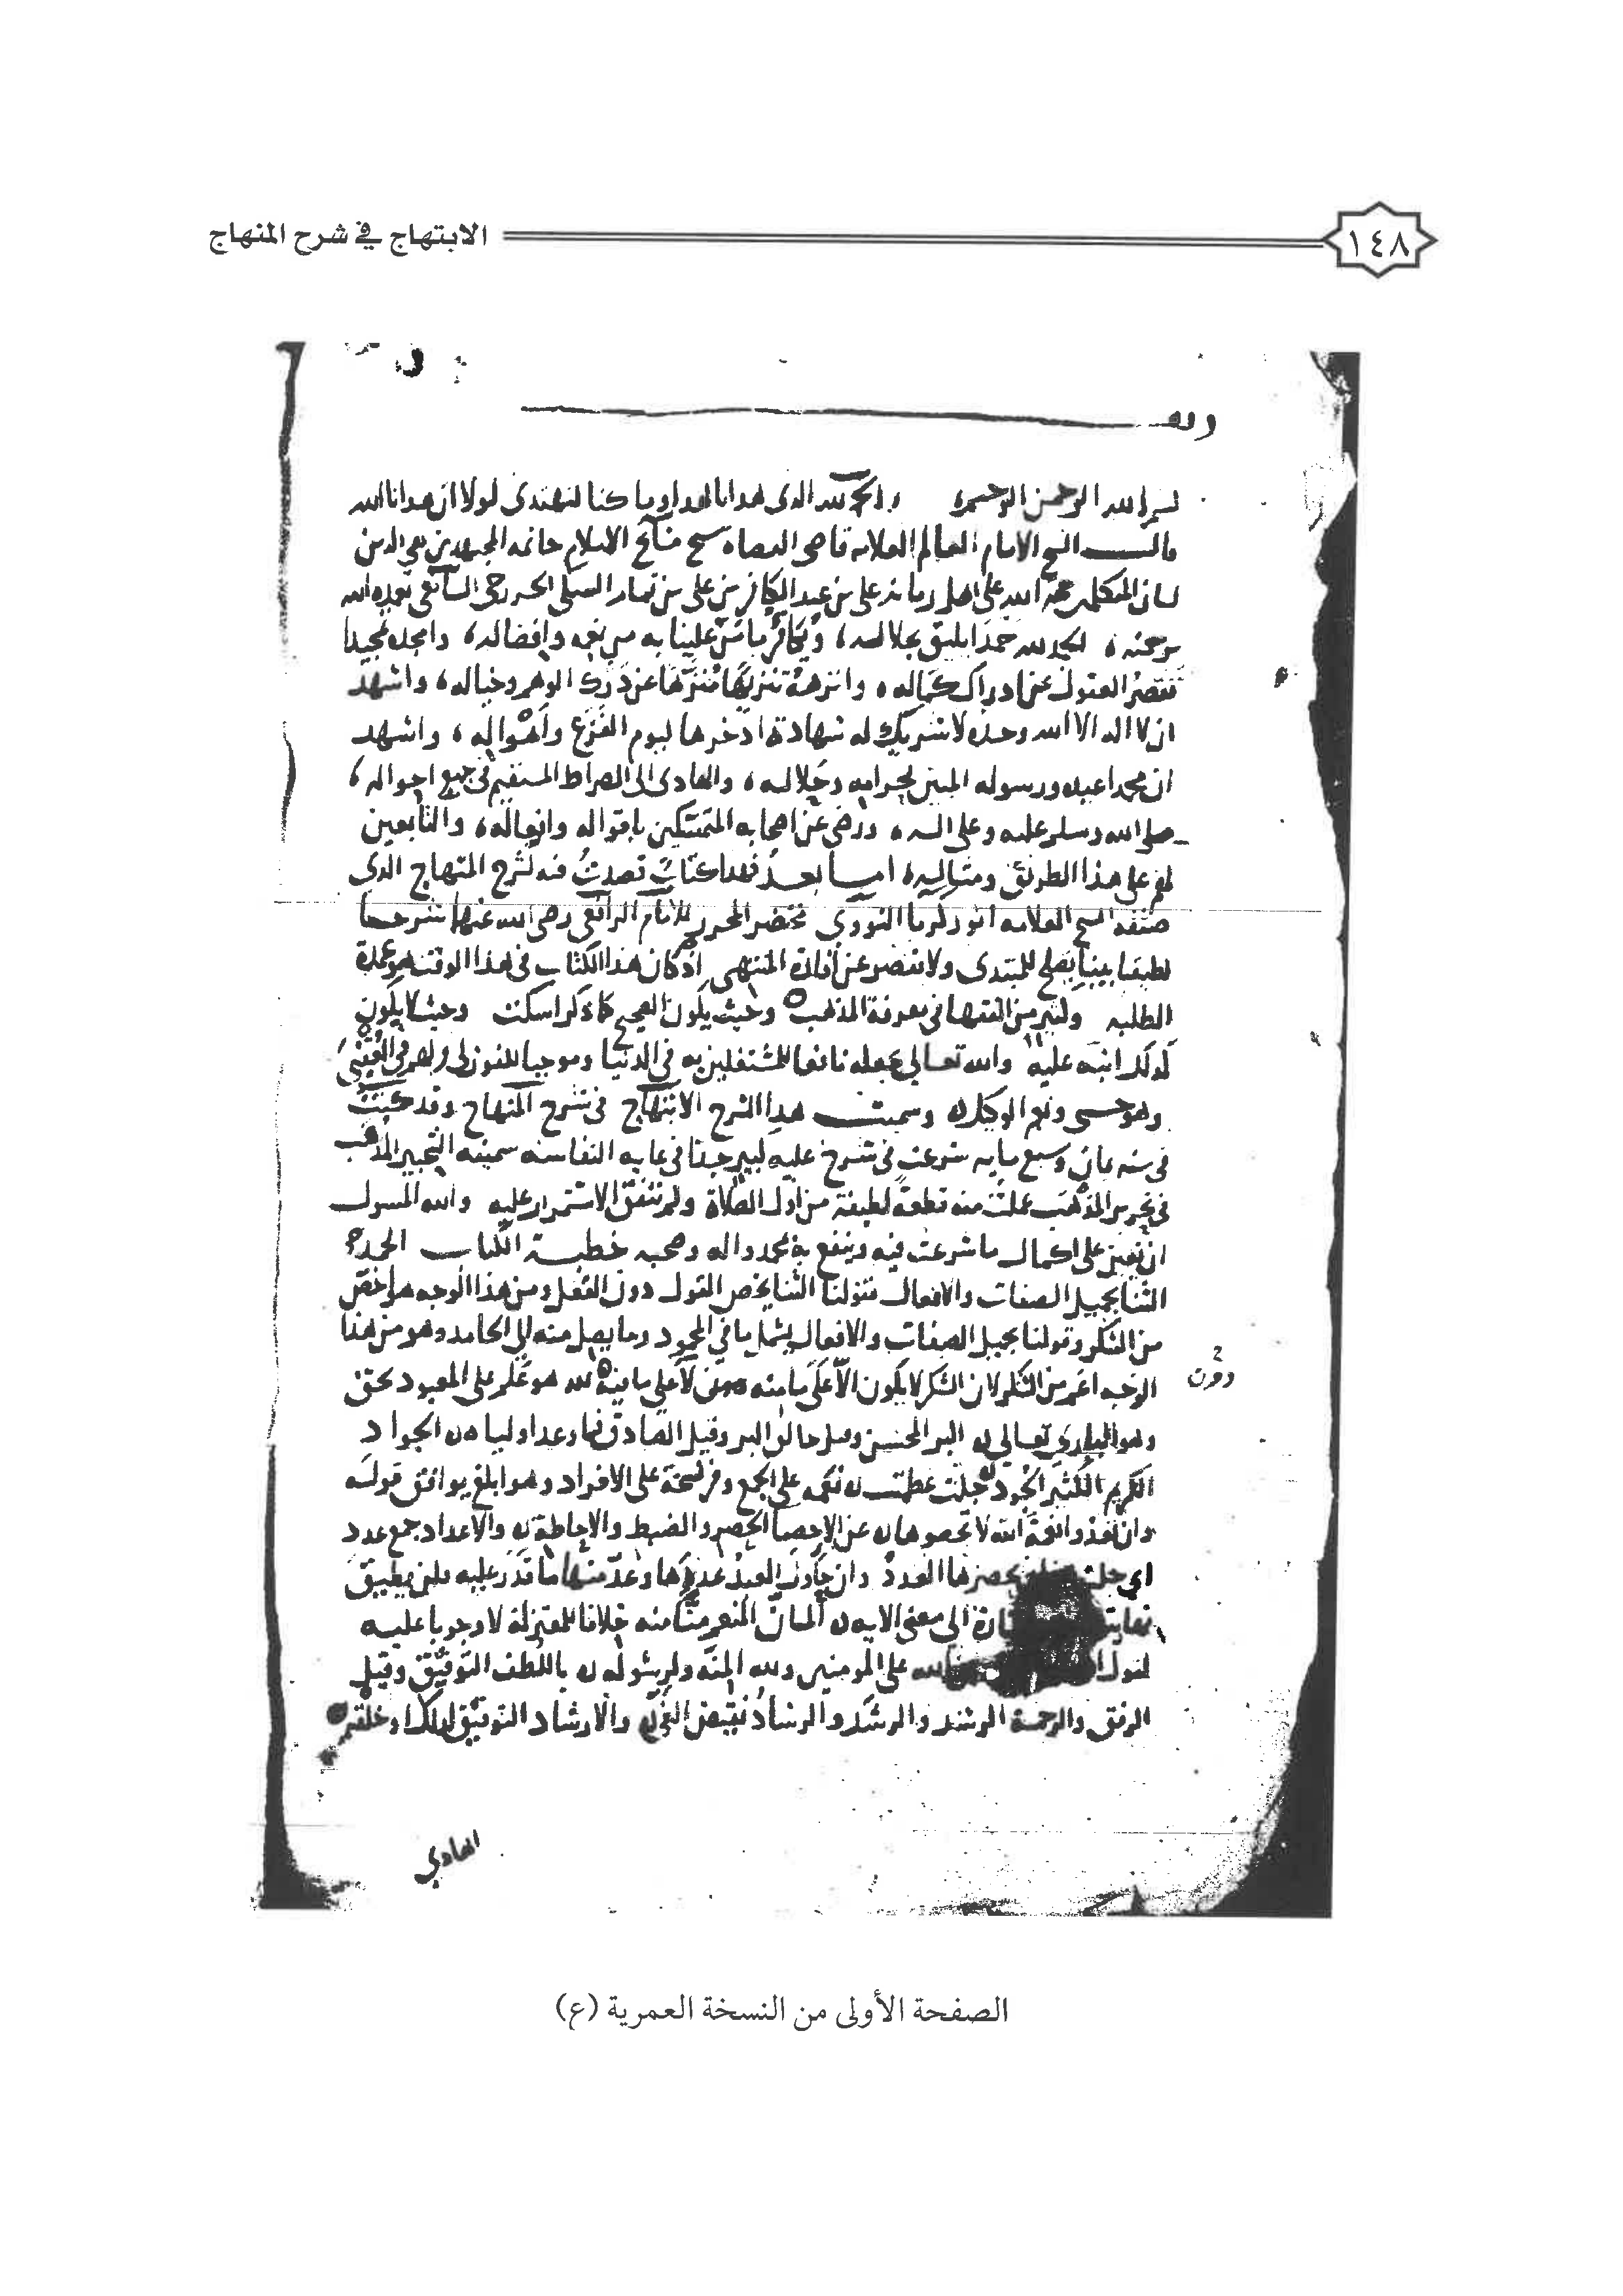 ١٤٨
الابتهاج في شرح المنهاج
بسم الله الرحمن الرحيم والحمد لله الذى هدانا لهذا وما كنا لنهتدى لولا ان هدانا الله
قال الشيخ الامام العالم العلامه قاضى القضاه شيخ مشايخ الاسلام خاتمه المجتهدين تقي الدين
لسان المتكلمين حجة الله على اهل زمانه على بن عبد الكافى بن على بن تمام السبكى الخزرجى الشافعى تغمده الله
برحمته الحمد لله حمدا يليق بجلاله، ويكافى ما من علينا به من نعمه وافضاله، وامجده تمجيدا
تقصر العقول عن ادراك كماله، وانزهه تنزيها منزها عن درك الوهم وخياله، واشهد
ان لا اله الا الله وحده لا شريك له شهادة ادخرها ليوم الفزع واهواله، واشهد
ان محمدا عبده ورسوله المبين لحرامه وحلاله، والهادى الى الصراط المستقيم فى جميع احواله،
صلى الله وسلم عليه وعلى اله، ورضى عن اصحابه المتمسكين باقواله وافعاله، والتابعين
لهم على هذا الطريق ومثاله، اما بعد فهذا كتاب قصدت فيه لشرح المنهاج الذى
صنفه الشيخ العلامه ابو زكريا النووى مختصر المحرر للامام الرافعى رضى الله عنهما شرحا
لطيفا بينا يصلح للمبتدى ولا يقصر عن افادة المنتهى اذ كان هذا الكتاب فى هذا الوقت هو عمدة
الطلبه وكثير من الفقها فى معرفة المذهب وحيث يكون الصحيح كما ذكر اسكت وحيث لا يكون
كذلك انبه عليه والله تعالى يجعله نافعا للمشتغلين به فى الدنيا وموجبا للفوز لى ولهم فى العقبى
وهو حسبى ونعم الوكيل وسميت هذا الشرح الابتهاج فى شرح المنهاج وقد كنت
فى سنه ثمان وسبع مايه شرعت فى شرح عليه كبير جدا فى غايه النفاسه سميته التحبير المذهب
فى تحرير المذهب عملت منه قطعة لطيفة من اول الصلاة ولم يتفق الاستمرار عليه والله المسول
ان يعين على اكمال ما شرعت فيه وينفع به بمحمد واله وصحبه خطبة الكتاب الحمد
الثنا بجميل الصفات والافعال فقولنا الثنا يخص القول دون الفعل ومن هذا الوجه هو اخص
من الشكر وقولنا بجميل الصفات والافعال يشمل ما فى المحمود وما يصل منه الى الحامد وهو من هذا
الوجه اعم من الشكر لان الشكر لا يكون الا على ما منه لا على ما فيه لله هو علم على المعبود بحق
وهو البارى تعالى البر المحسن وقيل خالق البر وقيل الصادق فيما وعد اولياه الجواد
الكريم الكثير الجود جلت عظمت نعمه على الجمع وفى نسخة على الافراد وهو ابلغ يوافق قوله
وان تعدوا نعمة الله لا تحصوها عن الاحصا الحصر والضبط والاحاطة والاعداد جمع عدد
اى جلت يحصرها العدد وان حاول العبد عدها وعد منها ما قدر عليه فلن يطيق
الى معنى الايه المان المنعم منا منه خلافا للمعتزلة لا وجوبا عليه
على المومنين ولله المنه ولرسوله باللطف التوفيق وقيل
الرفق والرحمة الرشد والرشد والرشاد نقيض الغى والارشاد التوفيق لذلك او خلقه
دون
الهادي
الصفحة الأولى من النسخة العمرية (ع)